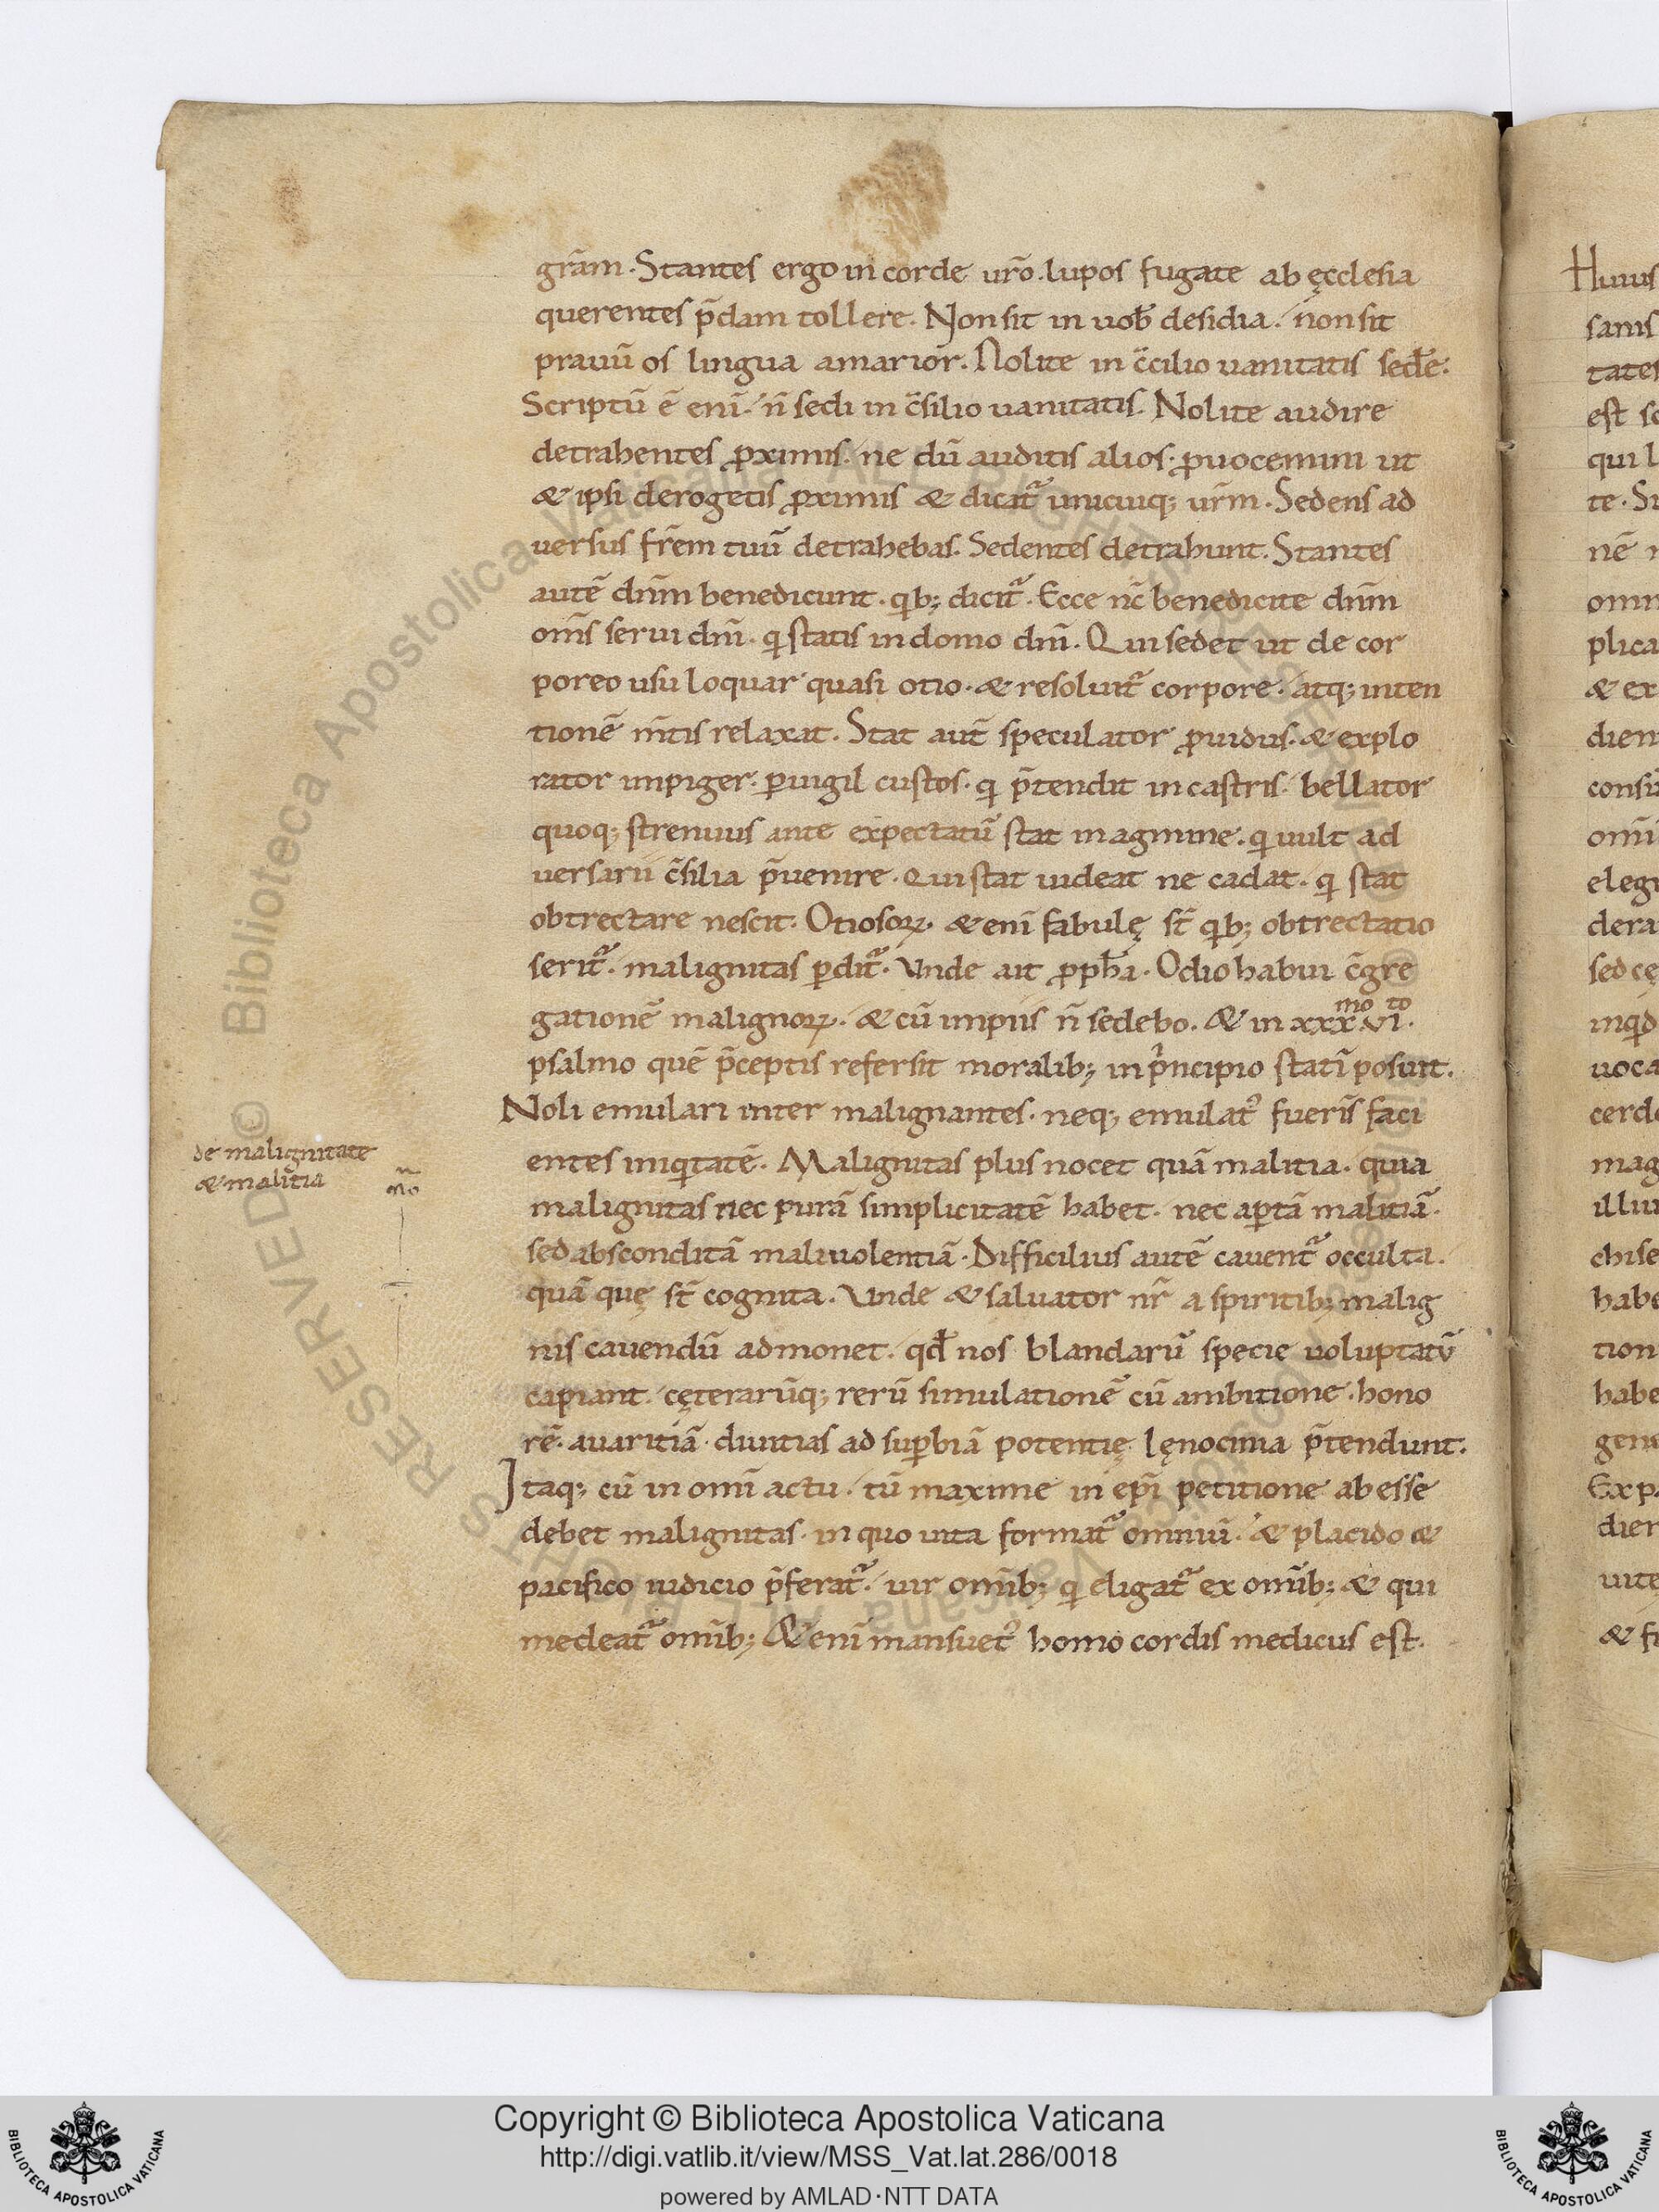 grãm. Stantes ergo in corde ur̃o. lupos fugate ab ęcclesia
querentes p̃dam tollere. Non sit in uob̃ desidia. non sit
prauũ os lingua amarior. Nolite in c̃cilio uanitatis sed̃e.
Scriptũ ẽ enĩ. ñ sedi in c̃silio uanitatis. Nolite audire
detrahentes ꝓximis. ne dũ auditis alios. ꝓuocemini ut
& ipsi derogetis ꝓximis & dicit᷑ unicuiq; ur̃m. Sedens ad
uersus fr̃em tuũ detrahebas. Sedentes detrahunt. Stantes
autẽ dñm benedicunt. qib; dicit᷑. Ecce nc̃ benedicite dñm
om̃s serui dñi. qi statis in domo dñi. Qui sedet ut de cor
poreo usu loquar quasi otio. & resoluit᷑ corpore. atq; inten
tionẽ m̃tis relaxat. Stat aut̃ speculator ꝓuidus. & explo
rator impiger. ꝑuigil custos. qi p̃tendit in castris. bellator
quoq; strenuus ante expectatũ stat in agmine. qi uult ad
uersarii c̃silia p̃uenire. Qui stat uideat ne cadat. qi stat
obtrectare nescit. Otiosoꝝ. & enĩ fabulę st̃ qib; obtrectatio
serit᷑. malignitas ꝑdit᷑. Vnde ait ꝓpħa. Odio habui c̃gre
gationẽ malignoꝝ. & cũ impiis ñ sedebo. & in xxx.mo vi.to
psalmo quẽ p̃ceptis refersit moralib; in pⁱncipio statĩ posuit.
Noli emulari inter malignantes. neq; emulat᾽ fueris̃ faci
entes iniqⁱtatẽ. Malignitas plus nocet quã malitia. quia
malignitas nec purã simplicitatẽ habet. nec aꝑtã malitiã.
sed absconditã maliuolentiã. Difficilius autẽ cauent᷑ occulta.
quã quę st̃ cognita. Vnde & saluator nr̃ a spiritib; malig
nis cauendũ admonet. qd̃ nos blandarũ specie uoluptatũ
capiant. cęterarũq; rerũ simulationẽ cũ ambitione. hono
rẽ. auaritiã. diuitias ad suꝑbiã potentię lęnocinia p̃tendunt.
Itaq; cũ in om̃i actu. tũ maxime in ep̃i petitione abesse
debet malignitas. in quo uita format᷑ omniũ. & placido &
pacifico iudicio p̃ferat᷑. uir om̃ib; qi eligat᷑ ex om̃ib; & qui
medeat᷑ om̃ib; & enĩ mansuet᾽ homo cordis medicus est.
de malignitate
& malitia
Huius
sanis
tates
est
qui
te.
nẽ
omn
plica
& ex
dien
omñ
elegi
dera
sed
inqd
uoca
cerdo
mag
illiu
chise
habe
tion
habe
gene
dier
uite
Copyright © Biblioteca Apostolica Vaticana
http://digi.vatlib.it/view/MSS_Vat.lat.286/0018
powered by AMLAD·NTT DATA
BIBLIOTECA APOSTOLICA VATICANA
BIBLIOTECA APOSTOLICA VATICANA